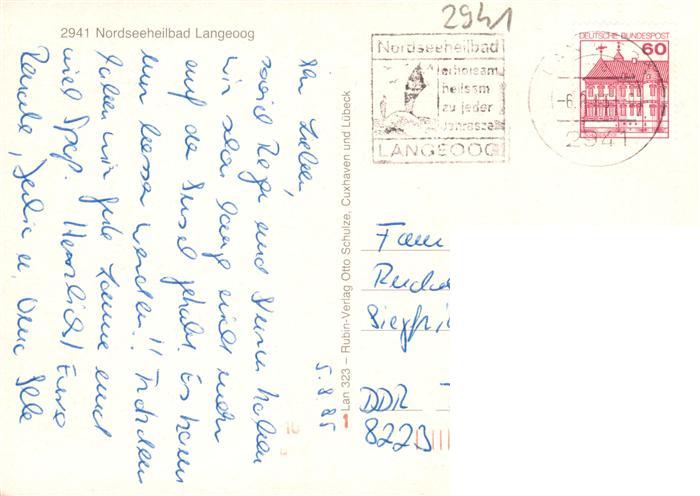 2941 Nordseeheilbad Langeoog
2941
Nordseeheilbad
erholsam
heilsam
zu jeder
Jahreszeit
LANGEOOG
DEUTSCHE BUNDESPOST
60
2941
5.8.85
Ihr Lieben,
soviel Regen und Sturm haben
wir schon lange nicht mehr
auf der Insel gehabt. Es kann
nur besser werden!! Trotzdem
haben wir gute Laune und
viel Spaß. Herzlichst Eure
u. Oma
Lan 323 – Rubin-Verlag Otto Schulze, Cuxhaven und Lübeck
Fam
Siegfri
DDR
8223